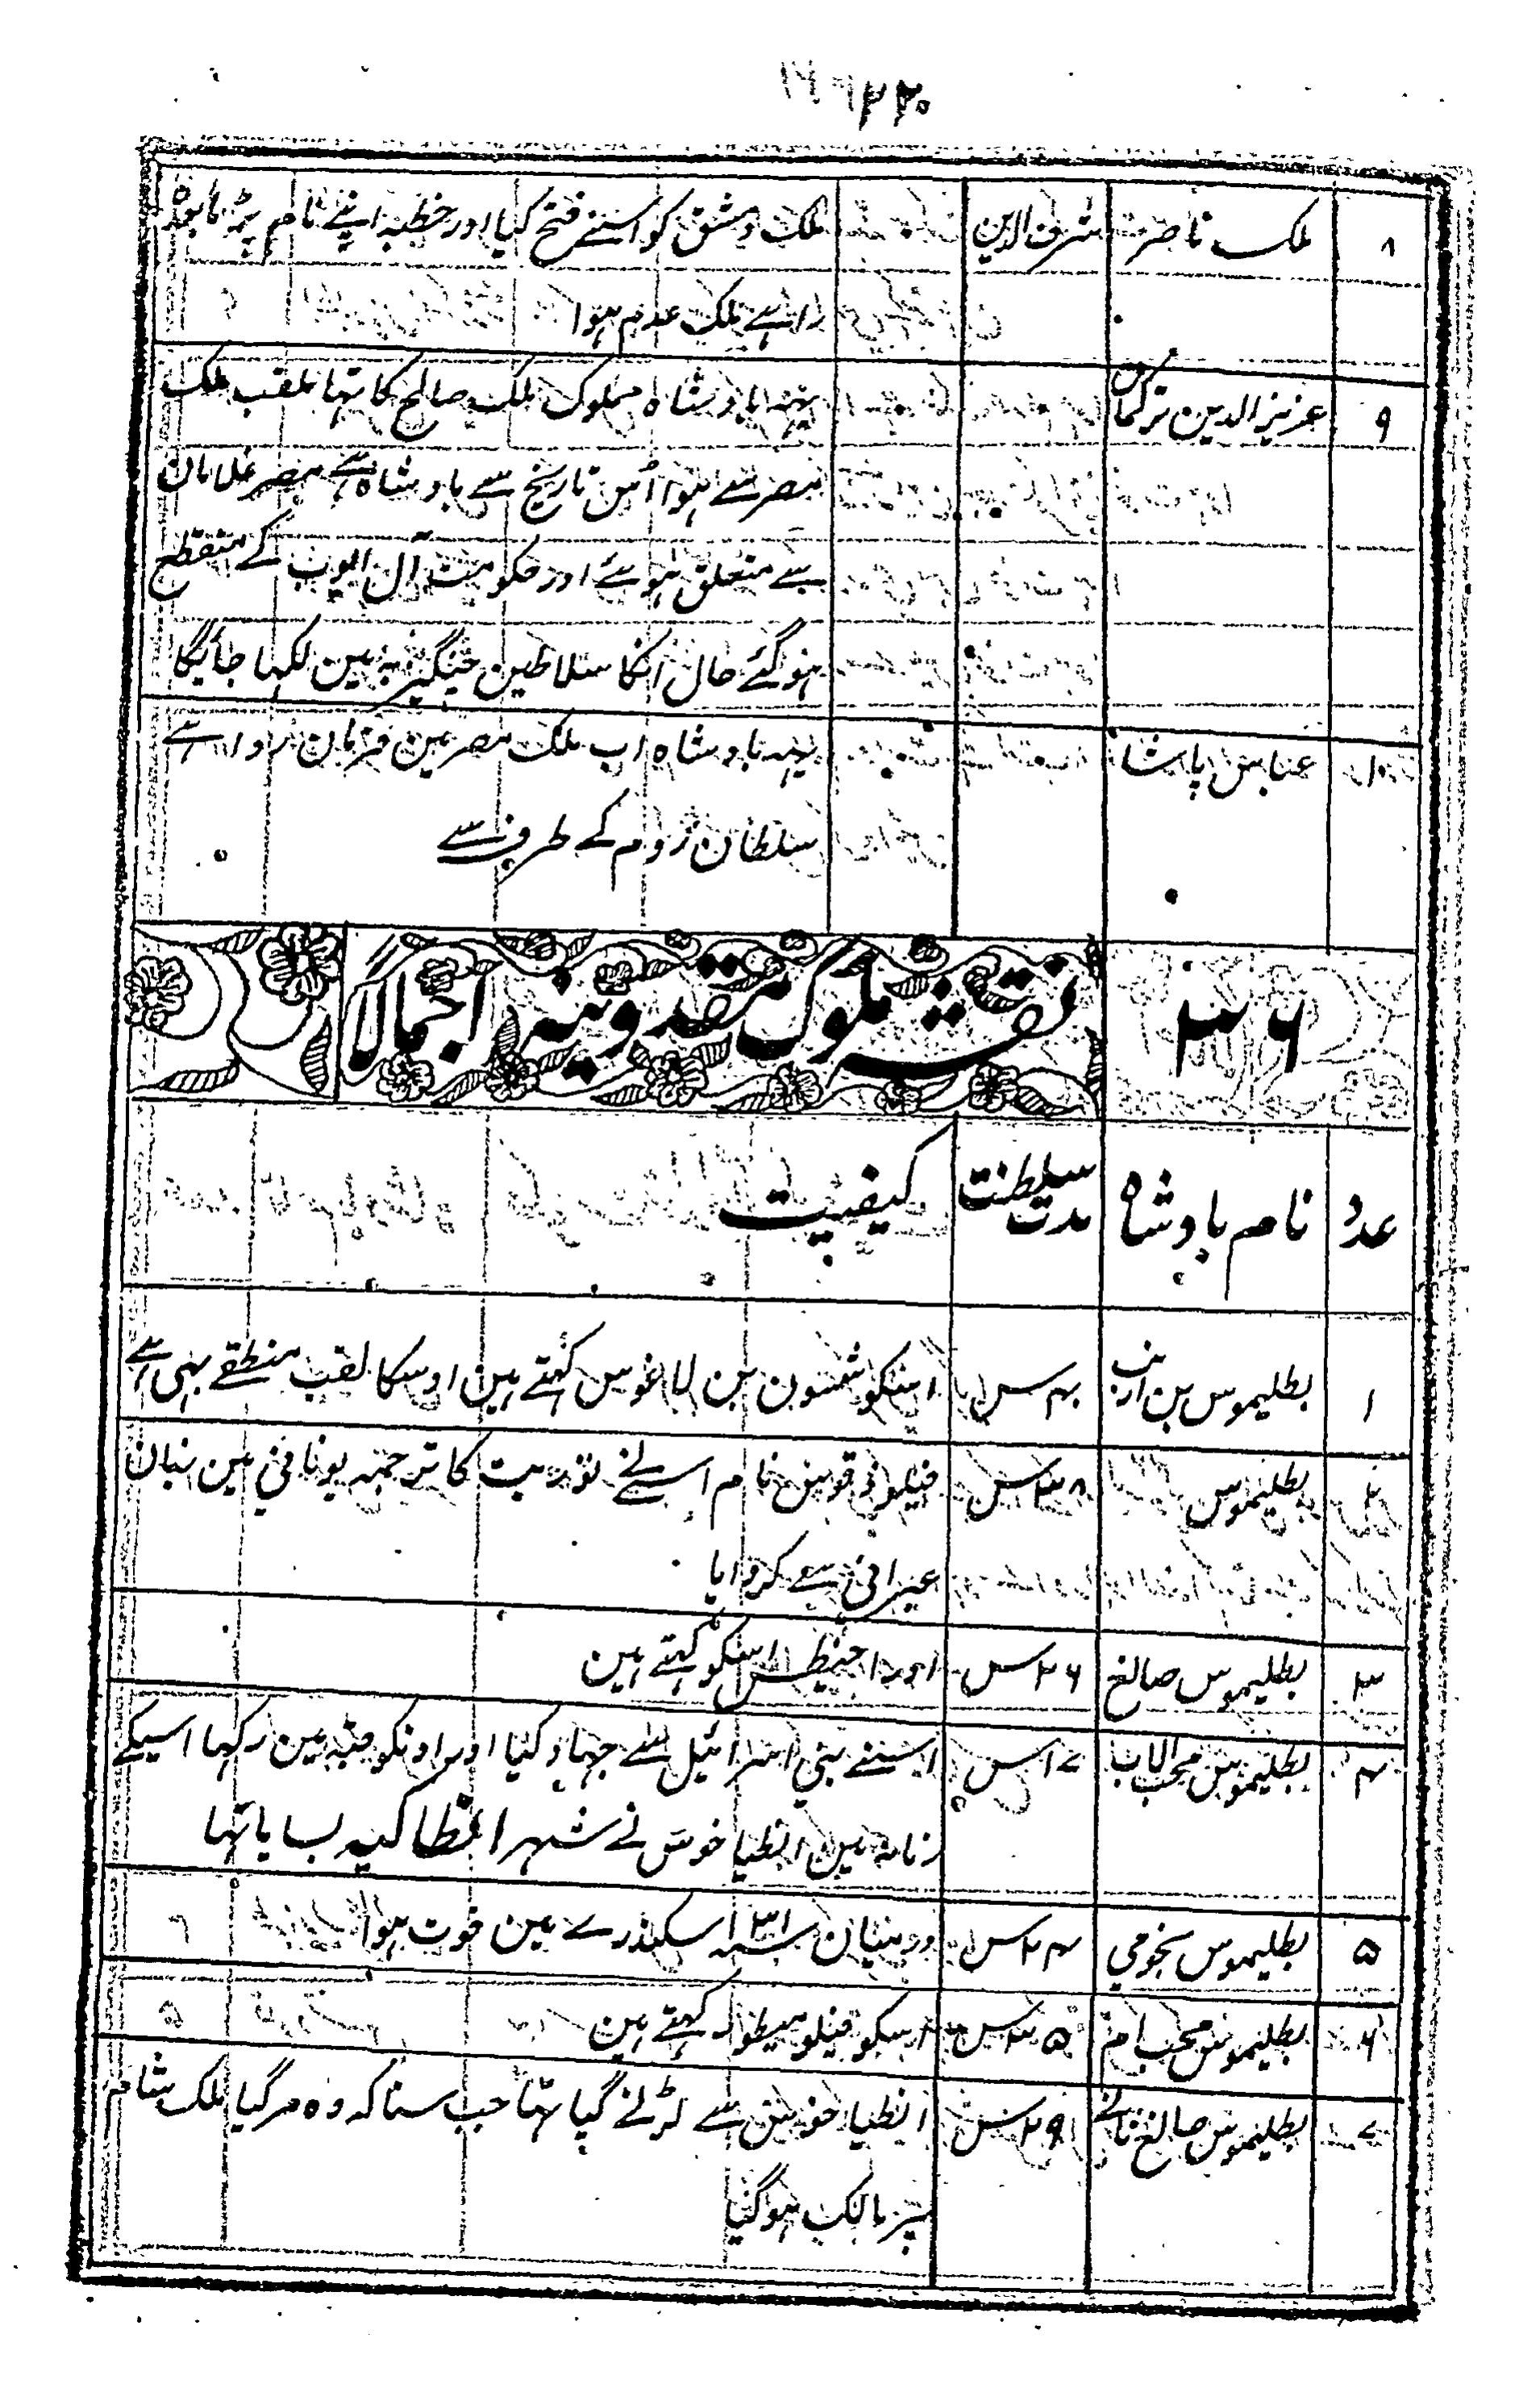 ۲۲۰
۸ ملک ناصر شرف الدین ملک دمشق کو اسنے فتح کیا اور خطبہ اپنے نام پڑہا بعدہ
راہے ملک عدم ہوا
۹ عزیز الدین ترکمانی یہہ بادشاہ مملوک ملک صالح کا تہا ملقب ملک
مصر سے ہوا اس تاریخ سے بادشاہے مصر غلامان
سے متعلق ہوئے اور حکومت آل ایوب کے منقطع
ہوگئے حال انکا سلاطین چنگیزیہ مین لکہا جائیگا
۱۰ عباس پاشا یہہ بادشاہ اب ملک مصر مین فرمان روا ہے
سلطان روم کے طرف سے
۳۶ نقشہ ملوک مقدونیہ اجمالاً
عدد نام بادشاہ مدت سلطنت کیفیت
۱ بطلیموس بن ارنب ۴۰ س اسکو شمسون بن لاغوس کہتے ہین اوسکا لقب منطقے بہی ہے
۲ بطلیموس ۳۸ س نام اسنے توریت کا ترجمہ یونانی مین زبان
عبرانی سے کروایا
۳ بطلیموس صالغ ۲۶ س اسکو کہتے ہین
۴ بطلیموس محب الاب ۱۷ س اسنے بنی اسرائیل سے جہاد کیا اور اونکو مین رکہا اسیکے
زمانہ مین انطیاخوس نے شہر انطاکیہ بسایا تہا
۵ بطلیموس نجومی ۲۴ س سنہ ۳۱ اسکندرے مین فوت ہوا
۶ بطلیموس محب ام ۳۵ س اسکو فیلومیطور کہتے ہین
۷ بطلیموس صالغ ثانے ۲۹ س انطیاخوس سے لڑنے گیا تہا جب سنا کہ وہ مرگیا ملک شام
پر مالک ہوگیا